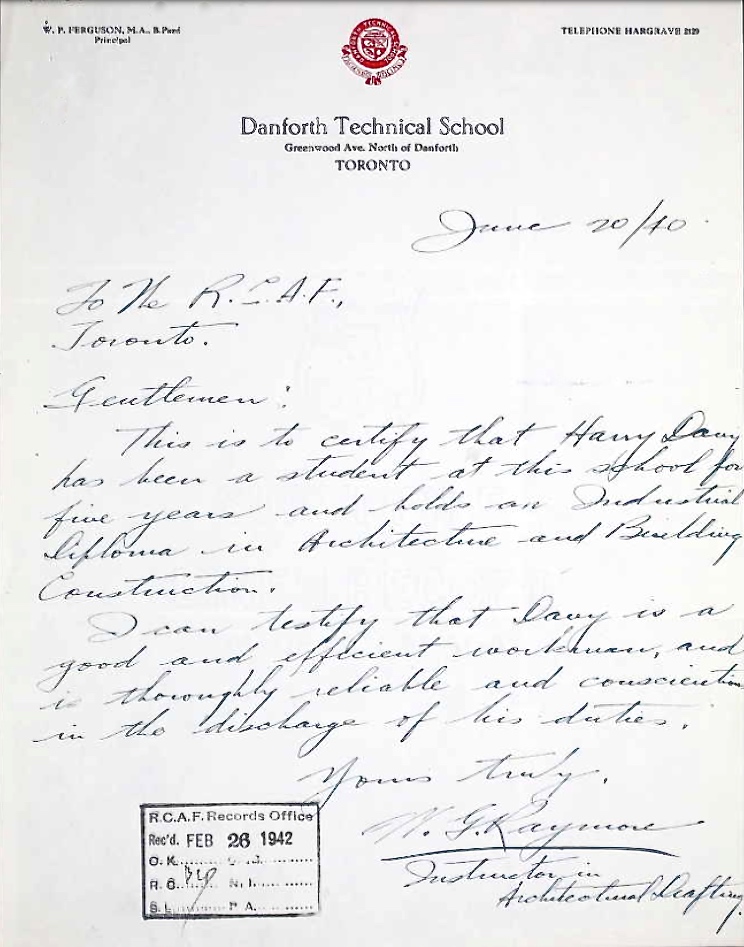 W. P. FERGUSON, M.A., B.Paed
Principal
TELEPHONE HARGRAVE 2129
Danforth Technical School
Greenwood Ave. North of Danforth
TORONTO
June 20/40.
To the R.C.A.F.,
Toronto.
Gentlemen:
This is to certify that Harry Davy
has been a student at this school for
five years and holds an Industrial
Diploma in Architecture and Building
Construction.
I can testify that Davy is a
good and efficient workman, and
is thoroughly reliable and conscientious
in the discharge of his duties.
Yours truly,
W. G. Raymore
Instructor in
Architectural Drafting.
R.C.A.F. Records Office
Rec'd. FEB 26 1942
O.K.
R.G. N.I.
S.L. P.A.